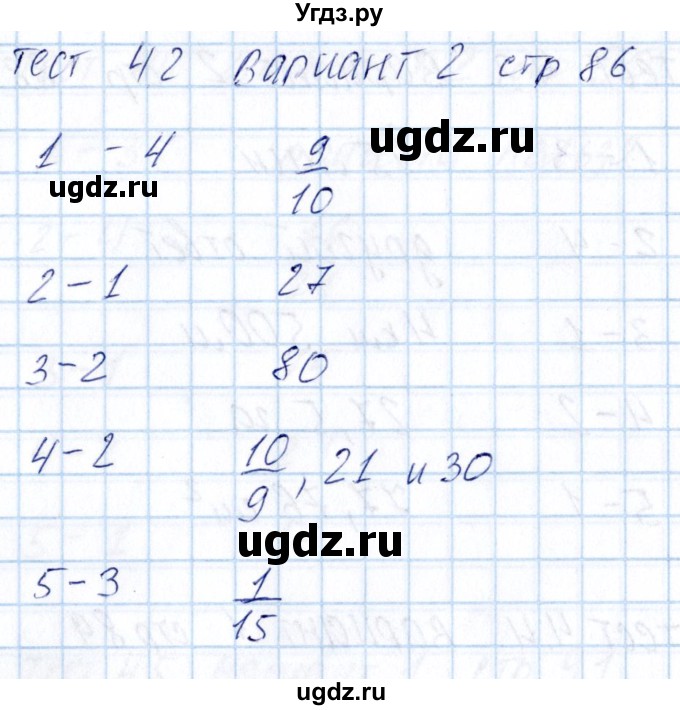 Угдз.ру
Тест 42 вариант 2 стр 86
ugdz.ru
1 - 4 9/10
ugdz.ru
2 - 1 27
3 - 2 80
4 - 2 10/9, 21 и 30
ugdz.ru
5 - 3 1/15
ugdz.ru